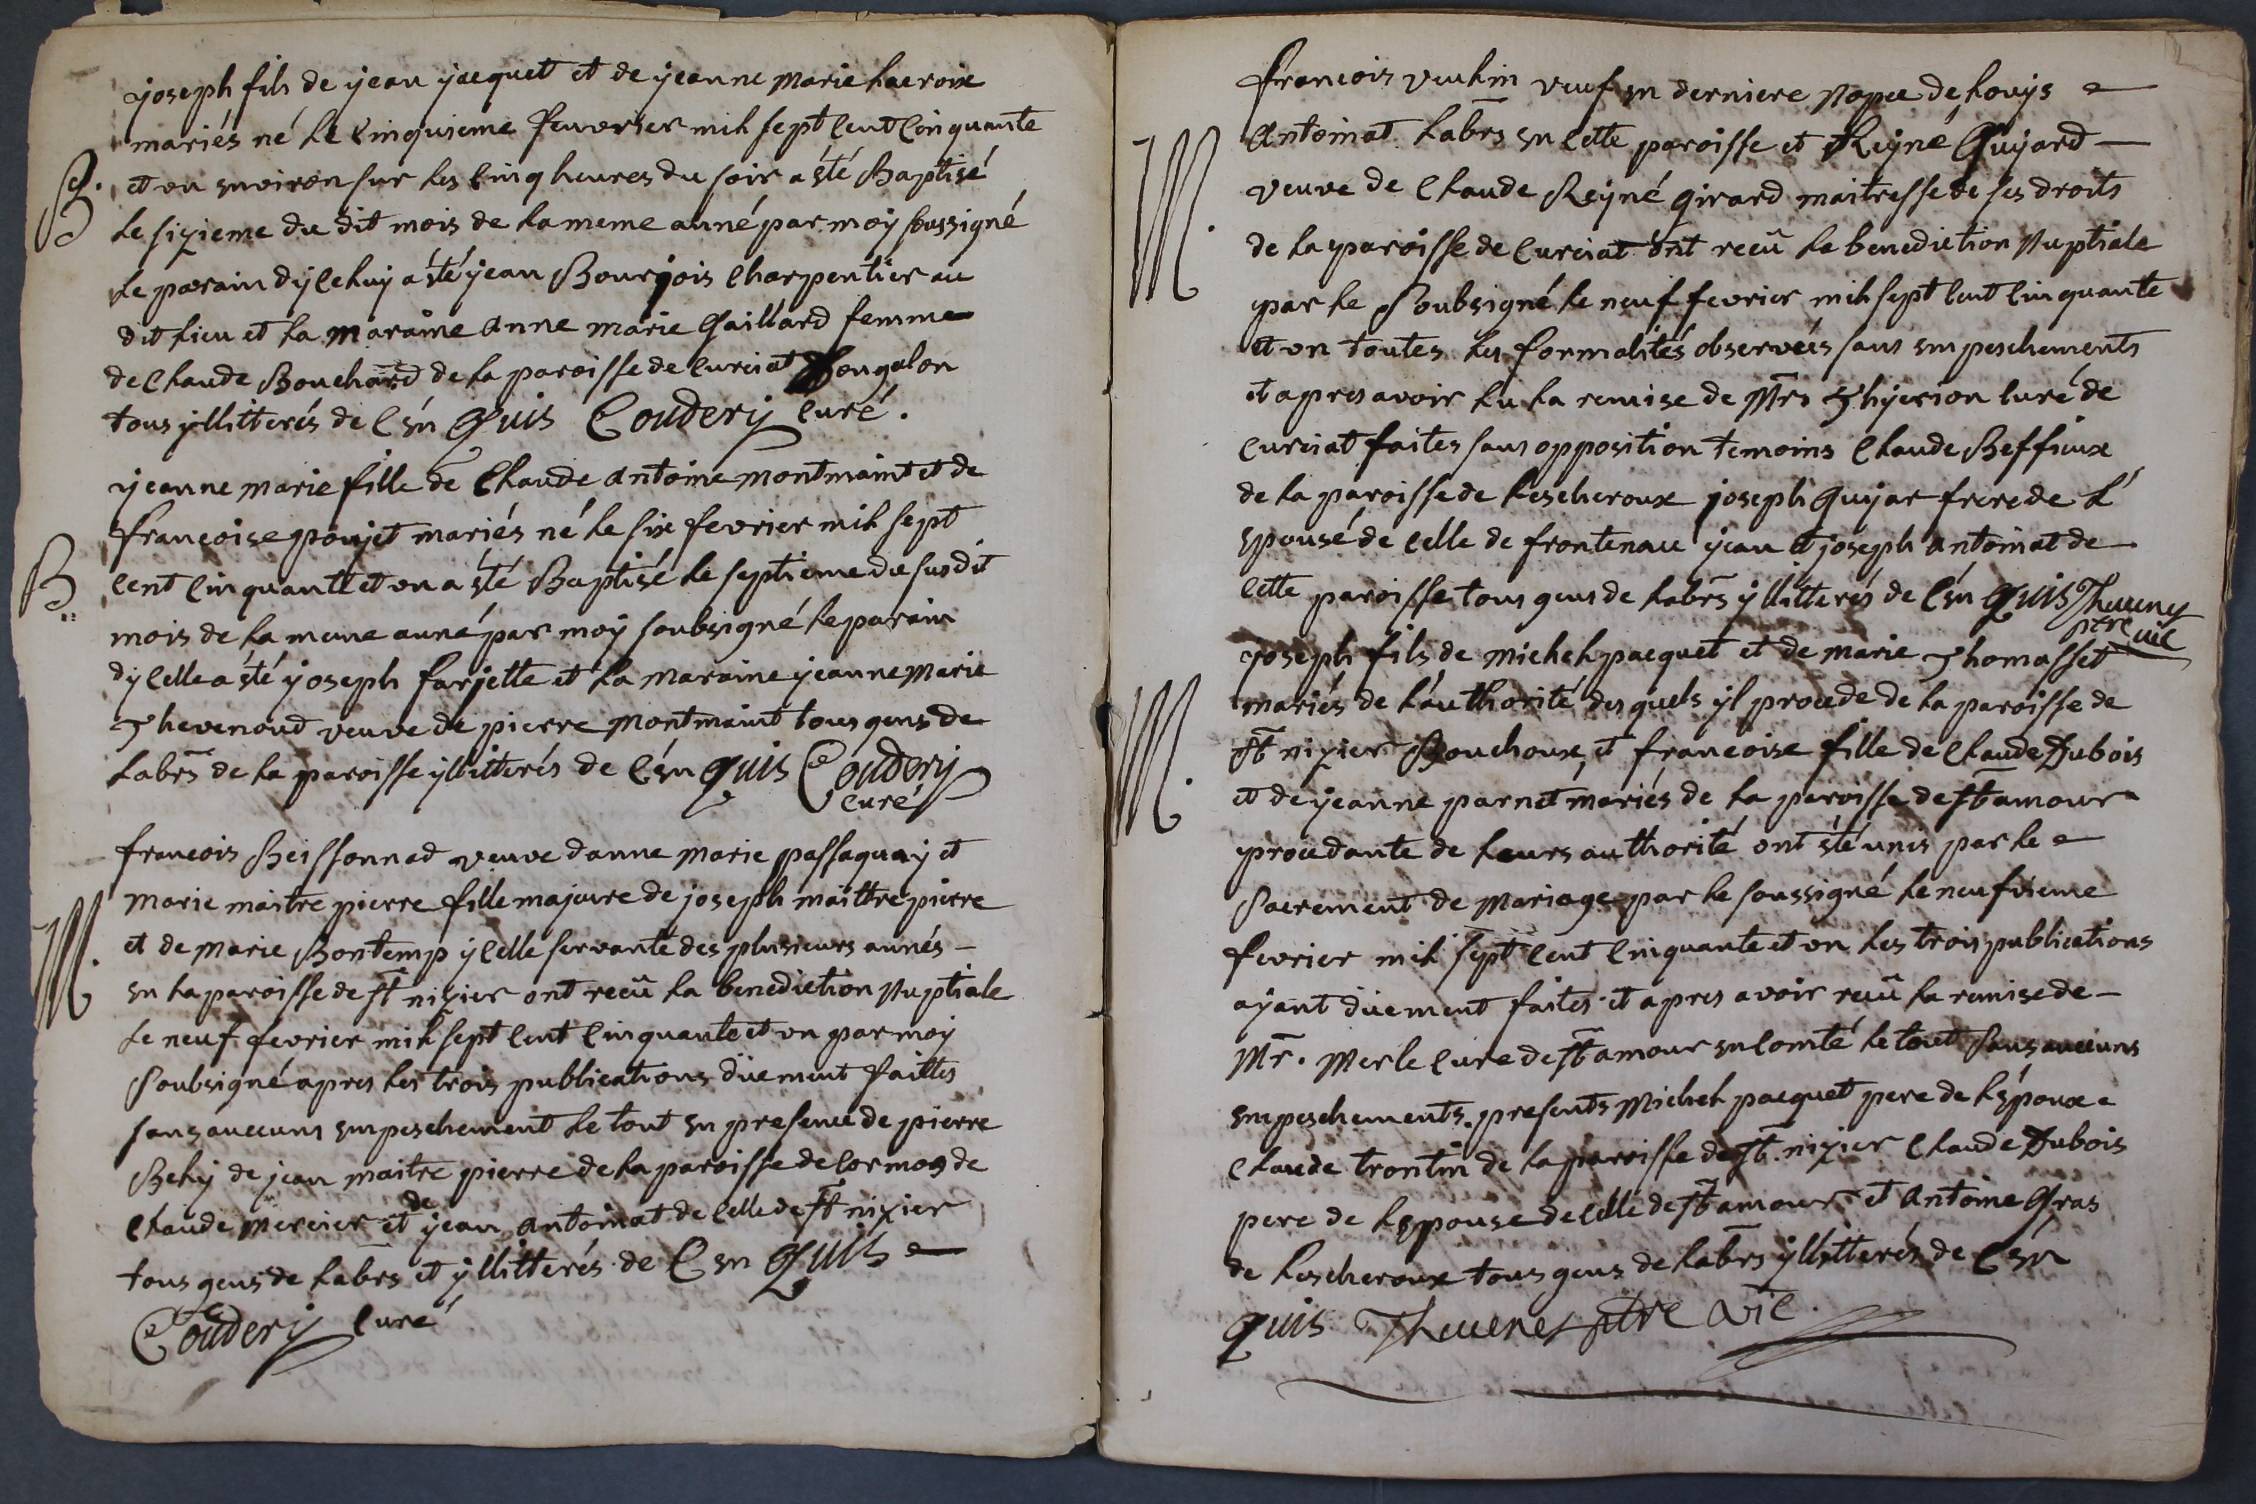 joseph fils de jean jacquet et de jeanne marie Lacroix
mariés né le cinquieme feuvrier mil sept cent cinquante
B. et un environ sur les cinq heures du soir a été Baptisé
le sizieme du dit mois de la meme anné par moÿ soussigné
le parain dÿceluy a été jean Bourjois charpentier au
dit lieu et la maraine anne marie Gaillard femme
de claude Bouchard de la paroisse de curciat Dongalon
tous ÿllitterés de Cen Quis Coudery curé.
jeanne marie fille de Claude antoine montmaint et de
françoise poujet mariés né le six fevrier mil sept
B.. cent cinquantte et un a été Baptisé le septieme du susdit
mois de la meme anné par moÿ soubsigné le parain
dÿcelle a été joseph farjette et la maraine jeanne marie
Thevenoud veuve de pierre montmaint tous gens de
Labrs de la paroisse ÿllitterés de Cen Quis Coudery
curé
francois Beissonnad veuve danne marie passaquaÿ et
marie maitre pierre fille majeure de joseph maittre pierre
M. et de marie Bontemp ÿcelle servante des plusieurs annés
en la paroisse de st nizier ont recû la benediction Nuptiale
le neuf fevrier mil sept cent cinquante et un par moÿ
Soubsigné apres les trois publications düement faittes
sans aucuns empeschement le tout en presence de pierre
Behÿ de jean maitre pierre de la paroisse de cormoz de
claude mercier et de jean antoinat de celle de st nizier
tous gens de Labrs et ÿllitterés de Cen Quis
Coudery curé
francois veuhin veuf en derniere Nopce de Louÿs
M. Antoinat Labrs en cette paroisse et Reÿné Guÿard
veuve de Claude Reÿné girard maitresse de ses droits
de la paroisse de Curciat ont recû la benediction Nuptiale
par le Soubsigné le neuf fevrier mil sept cent cinquante
et un toutes les formalités observeés sans empeschements
et apres avoir lu la remise de Mrs Thÿerion curé de
curciat faites sans opposition temoins Claude Beffieux
de la paroisse de Lescheroux joseph Guÿar frere de L'
epousé de celle de frontenau jean et joseph antoinat de
cette paroisse tous gens de Labrs ÿllitterés de Cen Quis Theveney
ptre vic
joseph fils de michel pacquet et de marie Thomasset
M. mariés de L'authorité desquels ÿl procede de la paroisse de
st nizier Bouchoux et francoise fille de Claude Dubois
et de jeanne parnet mariés de la paroisse de st amour
procedante de Leurs authorité ont été unis par le
Sacrement de mariage par le soussigné le neufvieme
fevrier mil sept cent cinquante et un les trois publications
aÿant düement faites et apres avoir recû la remise de
Mr. Merle curé de st amour en comté le tout sans aucuns
empeschements. presents Michel pacquet pere de Lépoux
claude trontin de la paroisse de st. nizier Claude Dubois
pere de Lepouse de celle de st amour et Antoine Gras
de Lescheroux tous gens de Labrs ÿllitterés de Cen
quis Theveney ptre vic